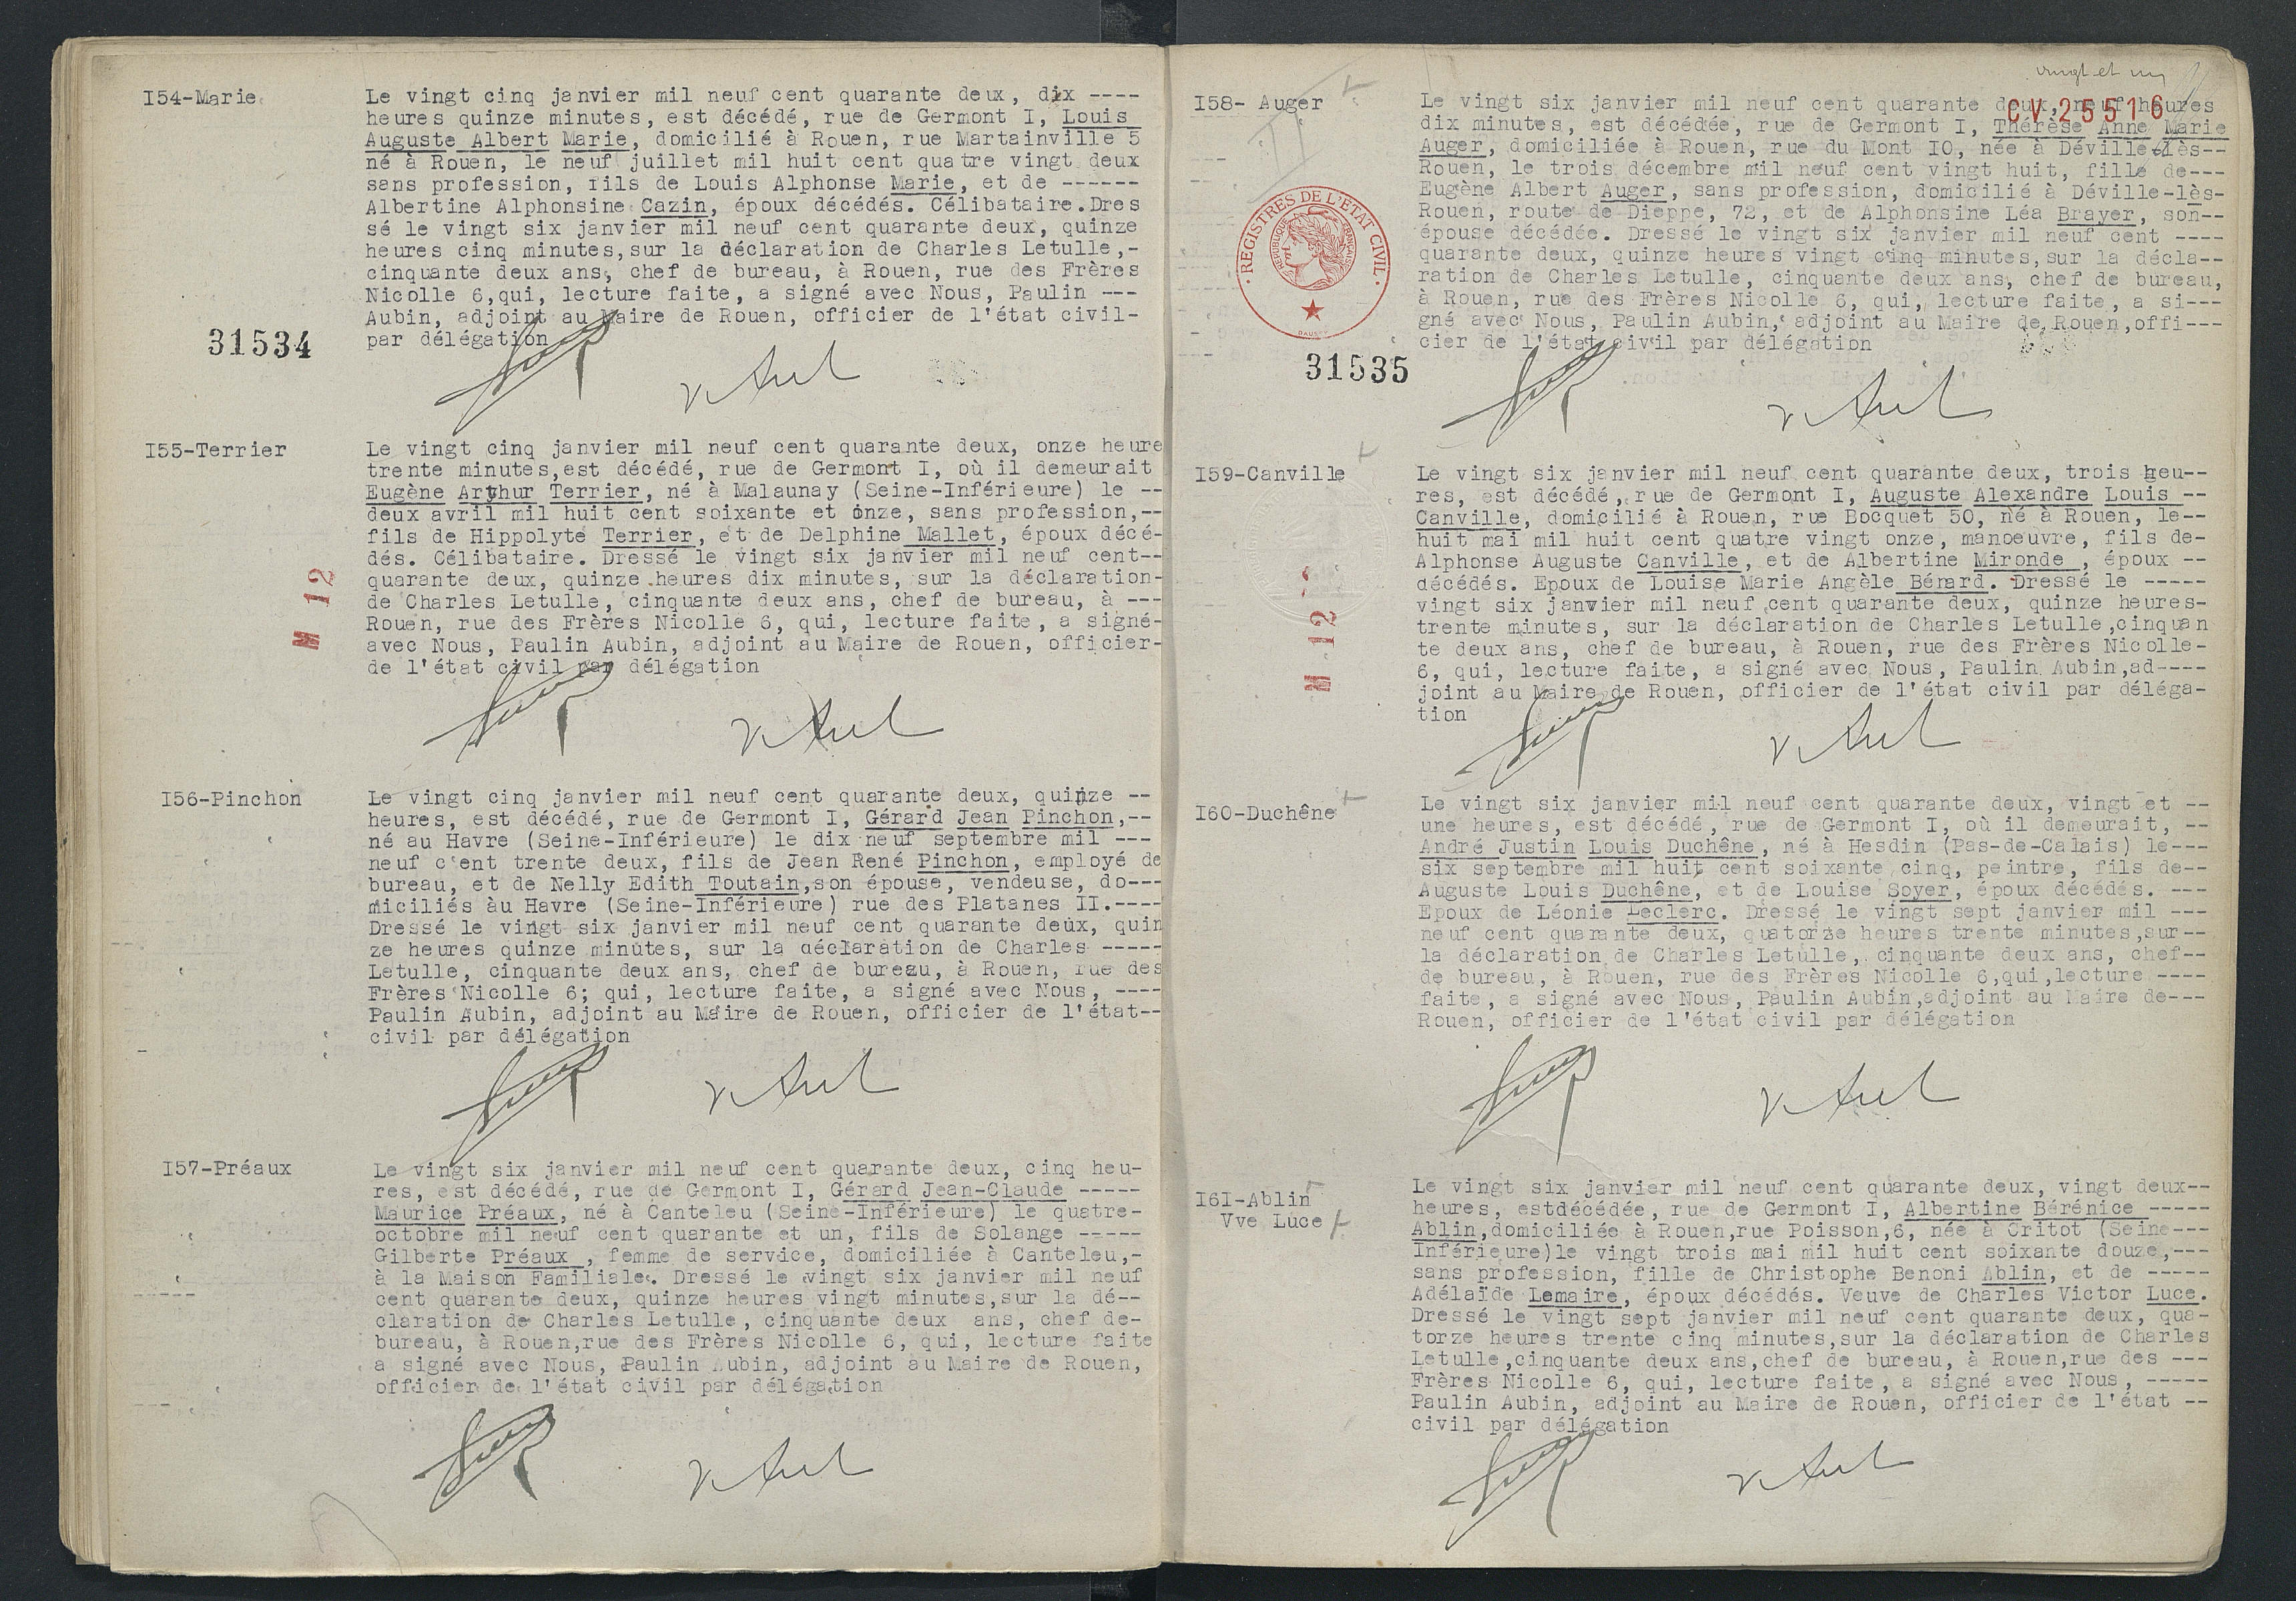 I54-Marie
Le vingt cinq janvier mil neuf cent quarante deux, dix ----
heures quinze minutes, est décédé, rue de Germont I, Louis
Auguste Albert Marie, domicilié à Rouen, rue Martainville 5
né à Rouen, le neuf juillet mil huit cent quatre vingt deux
sans profession, fils de Louis Alphonse Marie, et de ------
Albertine Alphonsine Cazin, époux décédés. Célibataire.Dres
sé le vingt six janvier mil neuf cent quarante deux, quinze
heures cinq minutes,sur la déclaration de Charles Letulle,-
cinquante deux ans, chef de bureau, à Rouen, rue des Frères
Nicolle 6,qui, lecture faite, a signé avec Nous, Paulin ---
Aubin, adjoint au Maire de Rouen, officier de l'état civil-
par délégation
31534
I55-Terrier
Le vingt cinq janvier mil neuf cent quarante deux, onze heure
trente minutes,est décédé, rue de Germont I, où il demeurait
Eugène Arthur Terrier, né à Malaunay (Seine-Inférieure) le --
deux avril mil huit cent soixante et onze, sans profession,--
fils de Hippolyte Terrier, et de Delphine Mallet, époux décé-
dés. Célibataire. Dressé le vingt six janvier mil neuf cent--
quarante deux, quinze heures dix minutes, sur la déclaration-
de Charles Letulle, cinquante deux ans, chef de bureau, à ---
Rouen, rue des Frères Nicolle 6, qui, lecture faite, a signé-
avec Nous, Paulin Aubin, adjoint au Maire de Rouen, officier-
de l'état civil par délégation
M 12
I56-Pinchon
Le vingt cinq janvier mil neuf cent quarante deux, quinze --
heures, est décédé, rue de Germont I, Gérard Jean Pinchon,--
né au Havre (Seine-Inférieure) le dix neuf septembre mil ---
neuf cent trente deux, fils de Jean René Pinchon, employé de
bureau, et de Nelly Edith Toutain,son épouse, vendeuse, do---
miciliés àu Havre (Seine-Inférieure) rue des Platanes II.----
Dressé le vingt six janvier mil neuf cent quarante deux, quin
ze heures quinze minutes, sur la déclaration de Charles -----
Letulle, cinquante deux ans, chef de bureau, à Rouen, rue des
Frères Nicolle 6; qui, lecture faite, a signé avec Nous, ----
Paulin Aubin, adjoint au Maire de Rouen, officier de l'état--
civil par délégation
I57-Préaux
Le vingt six janvier mil neuf cent quarante deux, cinq heu-
res, est décédé, rue de Germont I, Gérard Jean-Claude -----
Maurice Préaux, né à Canteleu (Seine-Inférieure) le quatre-
octobre mil neuf cent quarante et un, fils de Solange -----
Gilberte Préaux , femme de service, domiciliée à Canteleu,-
à la Maison Familiale. Dressé le vingt six janvier mil neuf
cent quarante deux, quinze heures vingt minutes,sur la dé--
claration de Charles Letulle, cinquante deux ans, chef de-
bureau, à Rouen,rue des Frères Nicolle 6, qui, lecture faite
a signé avec Nous, Paulin Aubin, adjoint au Maire de Rouen,
officier de l'état civil par délégation
vingt et un
CV 25516
I58- Auger
Le vingt six janvier mil neuf cent quarante deux, neuf heures
dix minutes, est décédée, rue de Germont I, Thérèse Anne Marie
Auger, domiciliée à Rouen, rue du Mont IO, née à Déville-lès--
Rouen, le trois décembre mil neuf cent vingt huit, fille de---
Eugène Albert Auger, sans profession, domicilié à Déville-lès-
Rouen, route de Dieppe, 72, et de Alphonsine Léa Brayer, son--
épouse décédée. Dressé le vingt six janvier mil neuf cent ----
quarante deux, quinze heures vingt cinq minutes,sur la décla--
ration de Charles Letulle, cinquante deux ans, chef de bureau,
à Rouen, rue des Frères Nicolle 6, qui, lecture faite, a si---
gné avec Nous, Paulin Aubin, adjoint au Maire de Rouen,offi---
cier de l'état civil par délégation
REGISTRES DE L'ETAT CIVIL
REPUBLIQUE FRANÇAISE
31535
I59-Canville
Le vingt six janvier mil neuf cent quarante deux, trois heu--
res, est décédé, rue de Germont I, Auguste Alexandre Louis --
Canville, domicilié à Rouen, rue Bocquet 50, né à Rouen, le--
huit mai mil huit cent quatre vingt onze, manoeuvre, fils de-
Alphonse Auguste Canville, et de Albertine Mironde , époux --
décédés. Epoux de Louise Marie Angèle Bérard. Dressé le -----
vingt six janvier mil neuf cent quarante deux, quinze heures-
trente minutes, sur la déclaration de Charles Letulle,cinquan
te deux ans, chef de bureau, à Rouen, rue des Frères Nicolle-
6, qui, lecture faite, a signé avec Nous, Paulin Aubin,ad----
joint au Maire de Rouen, officier de l'état civil par déléga-
tion
M 12
I60-Duchêne
Le vingt six janvier mil neuf cent quarante deux, vingt et --
une heures, est décédé, rue de Germont I, où il demeurait, --
André Justin Louis Duchêne, né à Hesdin (Pas-de-Calais) le---
six septembre mil huit cent soixante cinq, peintre, fils de--
Auguste Louis Duchêne, et de Louise Soyer, époux décédés. ---
Epoux de Léonie Leclerc. Dressé le vingt sept janvier mil ---
neuf cent quarante deux, quatorze heures trente minutes,sur--
la déclaration de Charles Letulle, cinquante deux ans, chef--
de bureau, à Rouen, rue des Frères Nicolle 6,qui,lecture ----
faite, a signé avec Nous, Paulin Aubin,adjoint au Maire de---
Rouen, officier de l'état civil par délégation
I6I-Ablin
Vve Luce
Le vingt six janvier mil neuf cent quarante deux, vingt deux--
heures, estdécédée, rue de Germont I, Albertine Bérénice -----
Ablin,domiciliée à Rouen,rue Poisson,6, née à Critot (Seine---
Inférieure)le vingt trois mai mil huit cent soixante douze,---
sans profession, fille de Christophe Benoni Ablin, et de -----
Adélaïde Lemaire, époux décédés. Veuve de Charles Victor Luce.
Dressé le vingt sept janvier mil neuf cent quarante deux, qua-
torze heures trente cinq minutes,sur la déclaration de Charles
Letulle,cinquante deux ans,chef de bureau, à Rouen,rue des ---
Frères Nicolle 6, qui, lecture faite, a signé avec Nous, -----
Paulin Aubin, adjoint au Maire de Rouen, officier de l'état --
civil par délégation